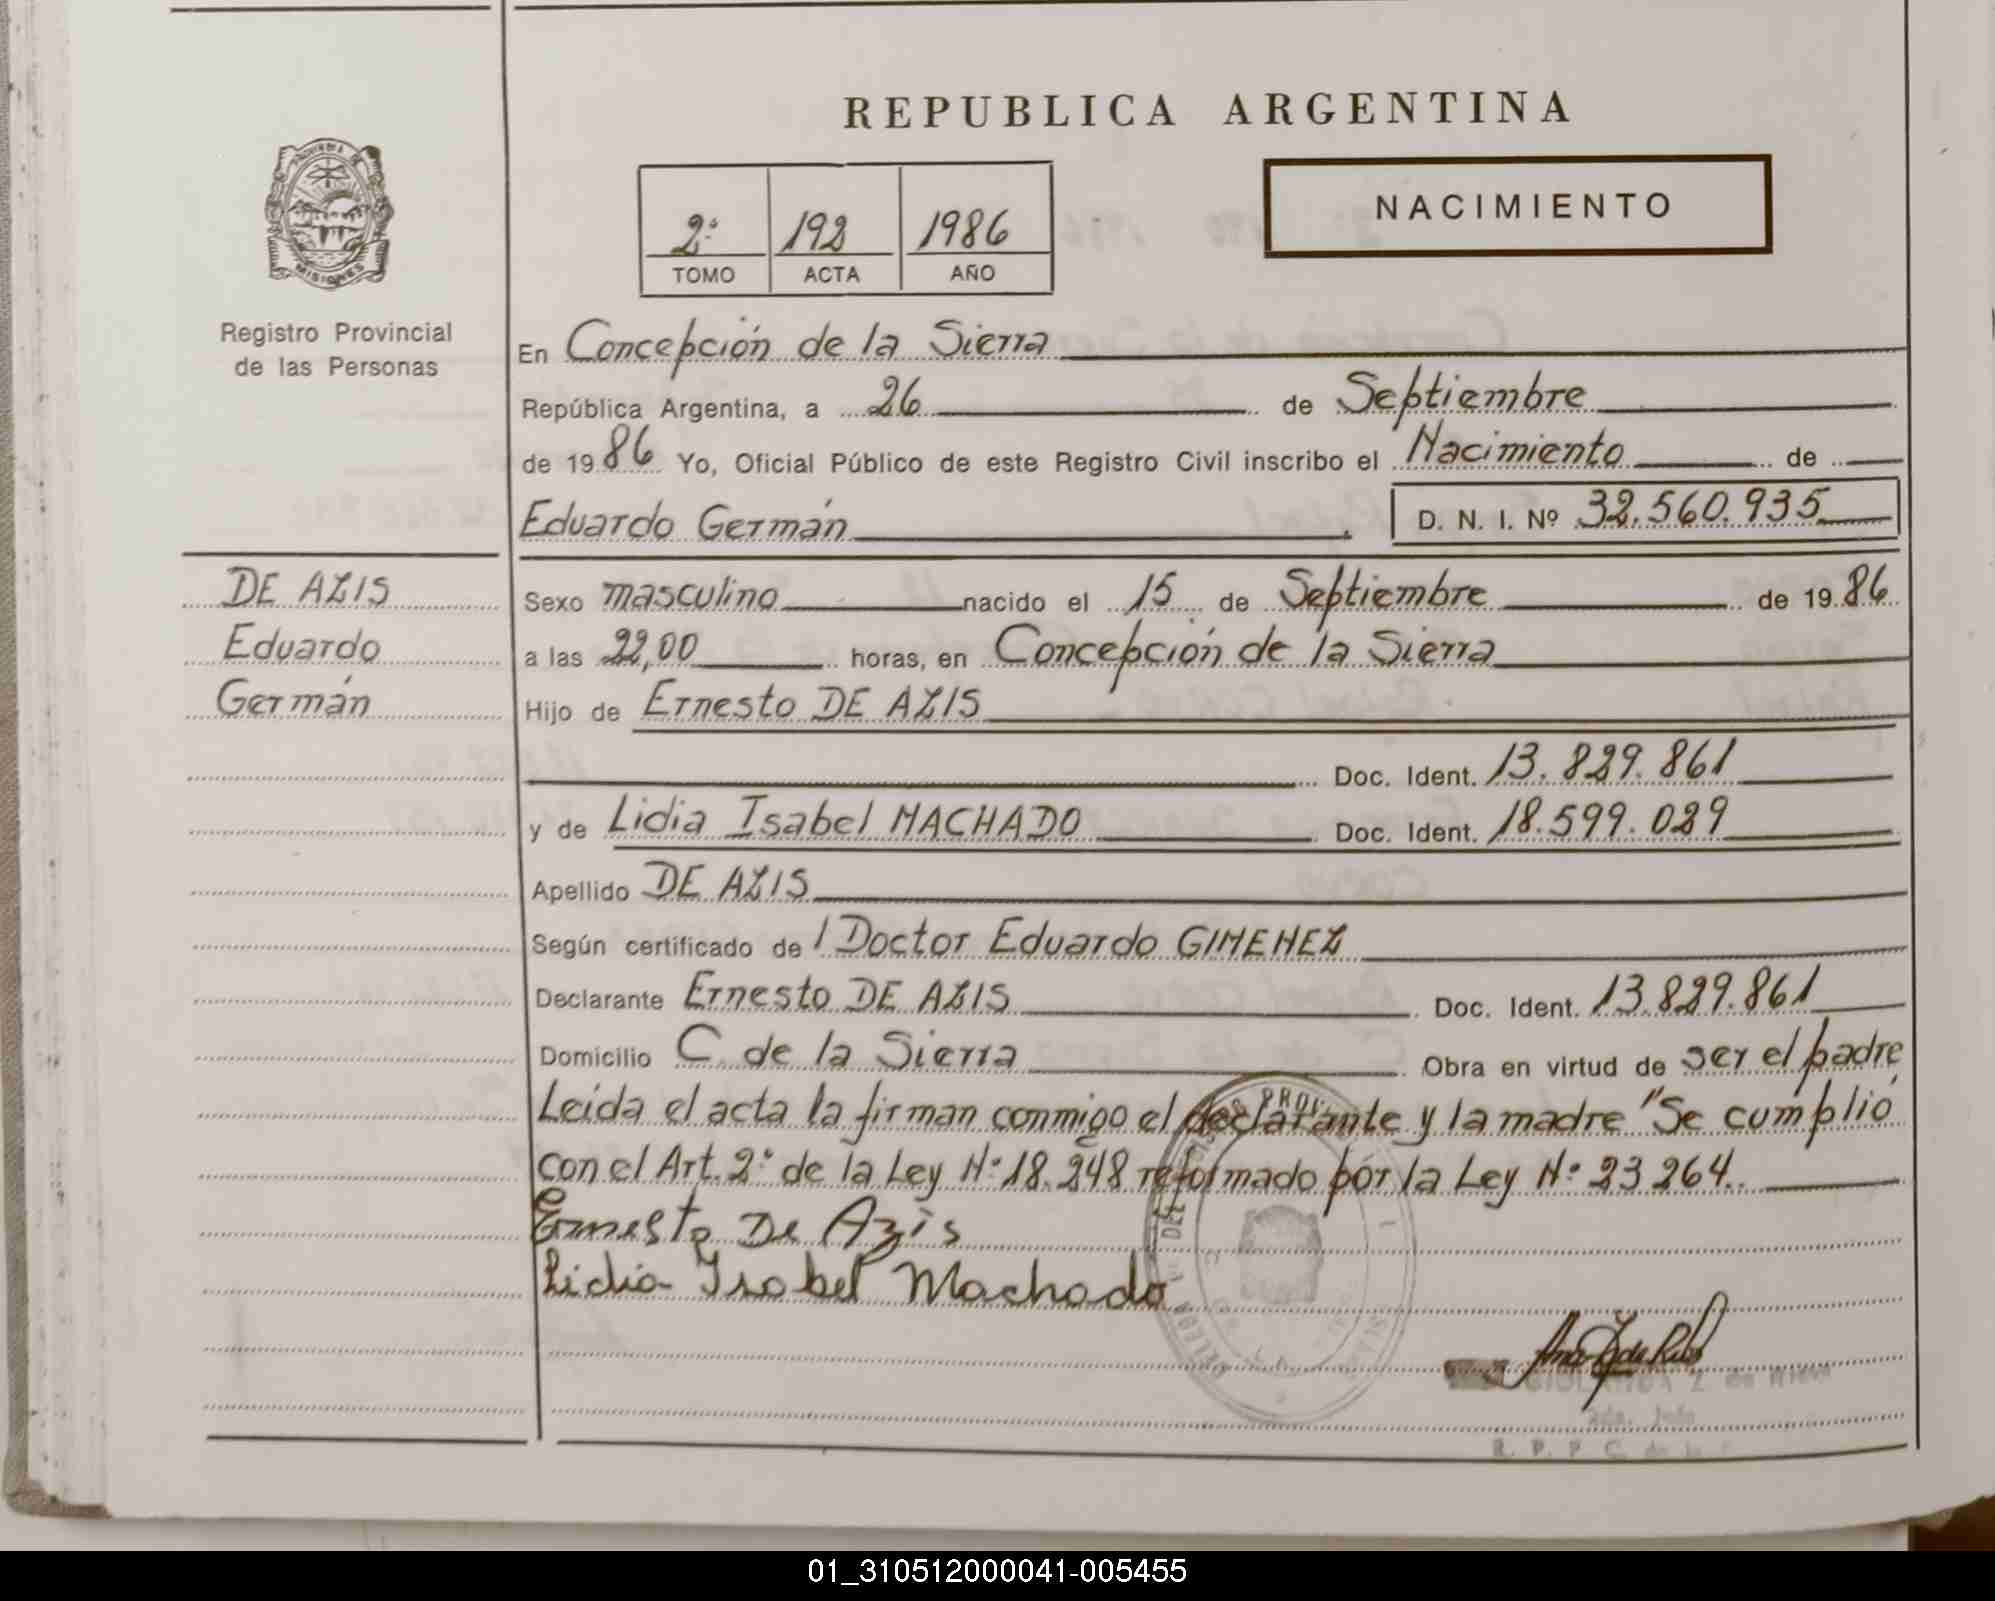 REPUBLICA ARGENTINA
PROVINCIA DE
MISIONES
Registro Provincial
de las Personas
2º 192 1986
TOMO ACTA AÑO
NACIMIENTO
En Concepción de la Sierra
República Argentina, a 26 de Septiembre
de 1986 Yo, Oficial Público de este Registro Civil inscribo el Nacimiento de
Eduardo Germán. D. N. I. Nº 32.560.935
DE AZIS
Eduardo
Germán
Sexo masculino nacido el 15 de Septiembre de 1986
a las 22,00 horas, en Concepción de la Sierra
Hijo de Ernesto DE AZIS
Doc. Ident. 13.829.861
y de Lidia Isabel MACHADO Doc. Ident. 18.599.029
Apellido DE AZIS
Según certificado de l Doctor Eduardo GIMENEZ
Declarante Ernesto DE AZIS Doc. Ident. 13.829.861
Domicilio C. de la Sierra Obra en virtud de ser el padre
Leida el acta la firman conmigo el declarante y la madre "Se cumplió
con el Art. 2º de la Ley Nº 18.248 reformado por la Ley Nº 23264.
Ernesto De Azis
Lidia Isabel Machado
01_310512000041-005455